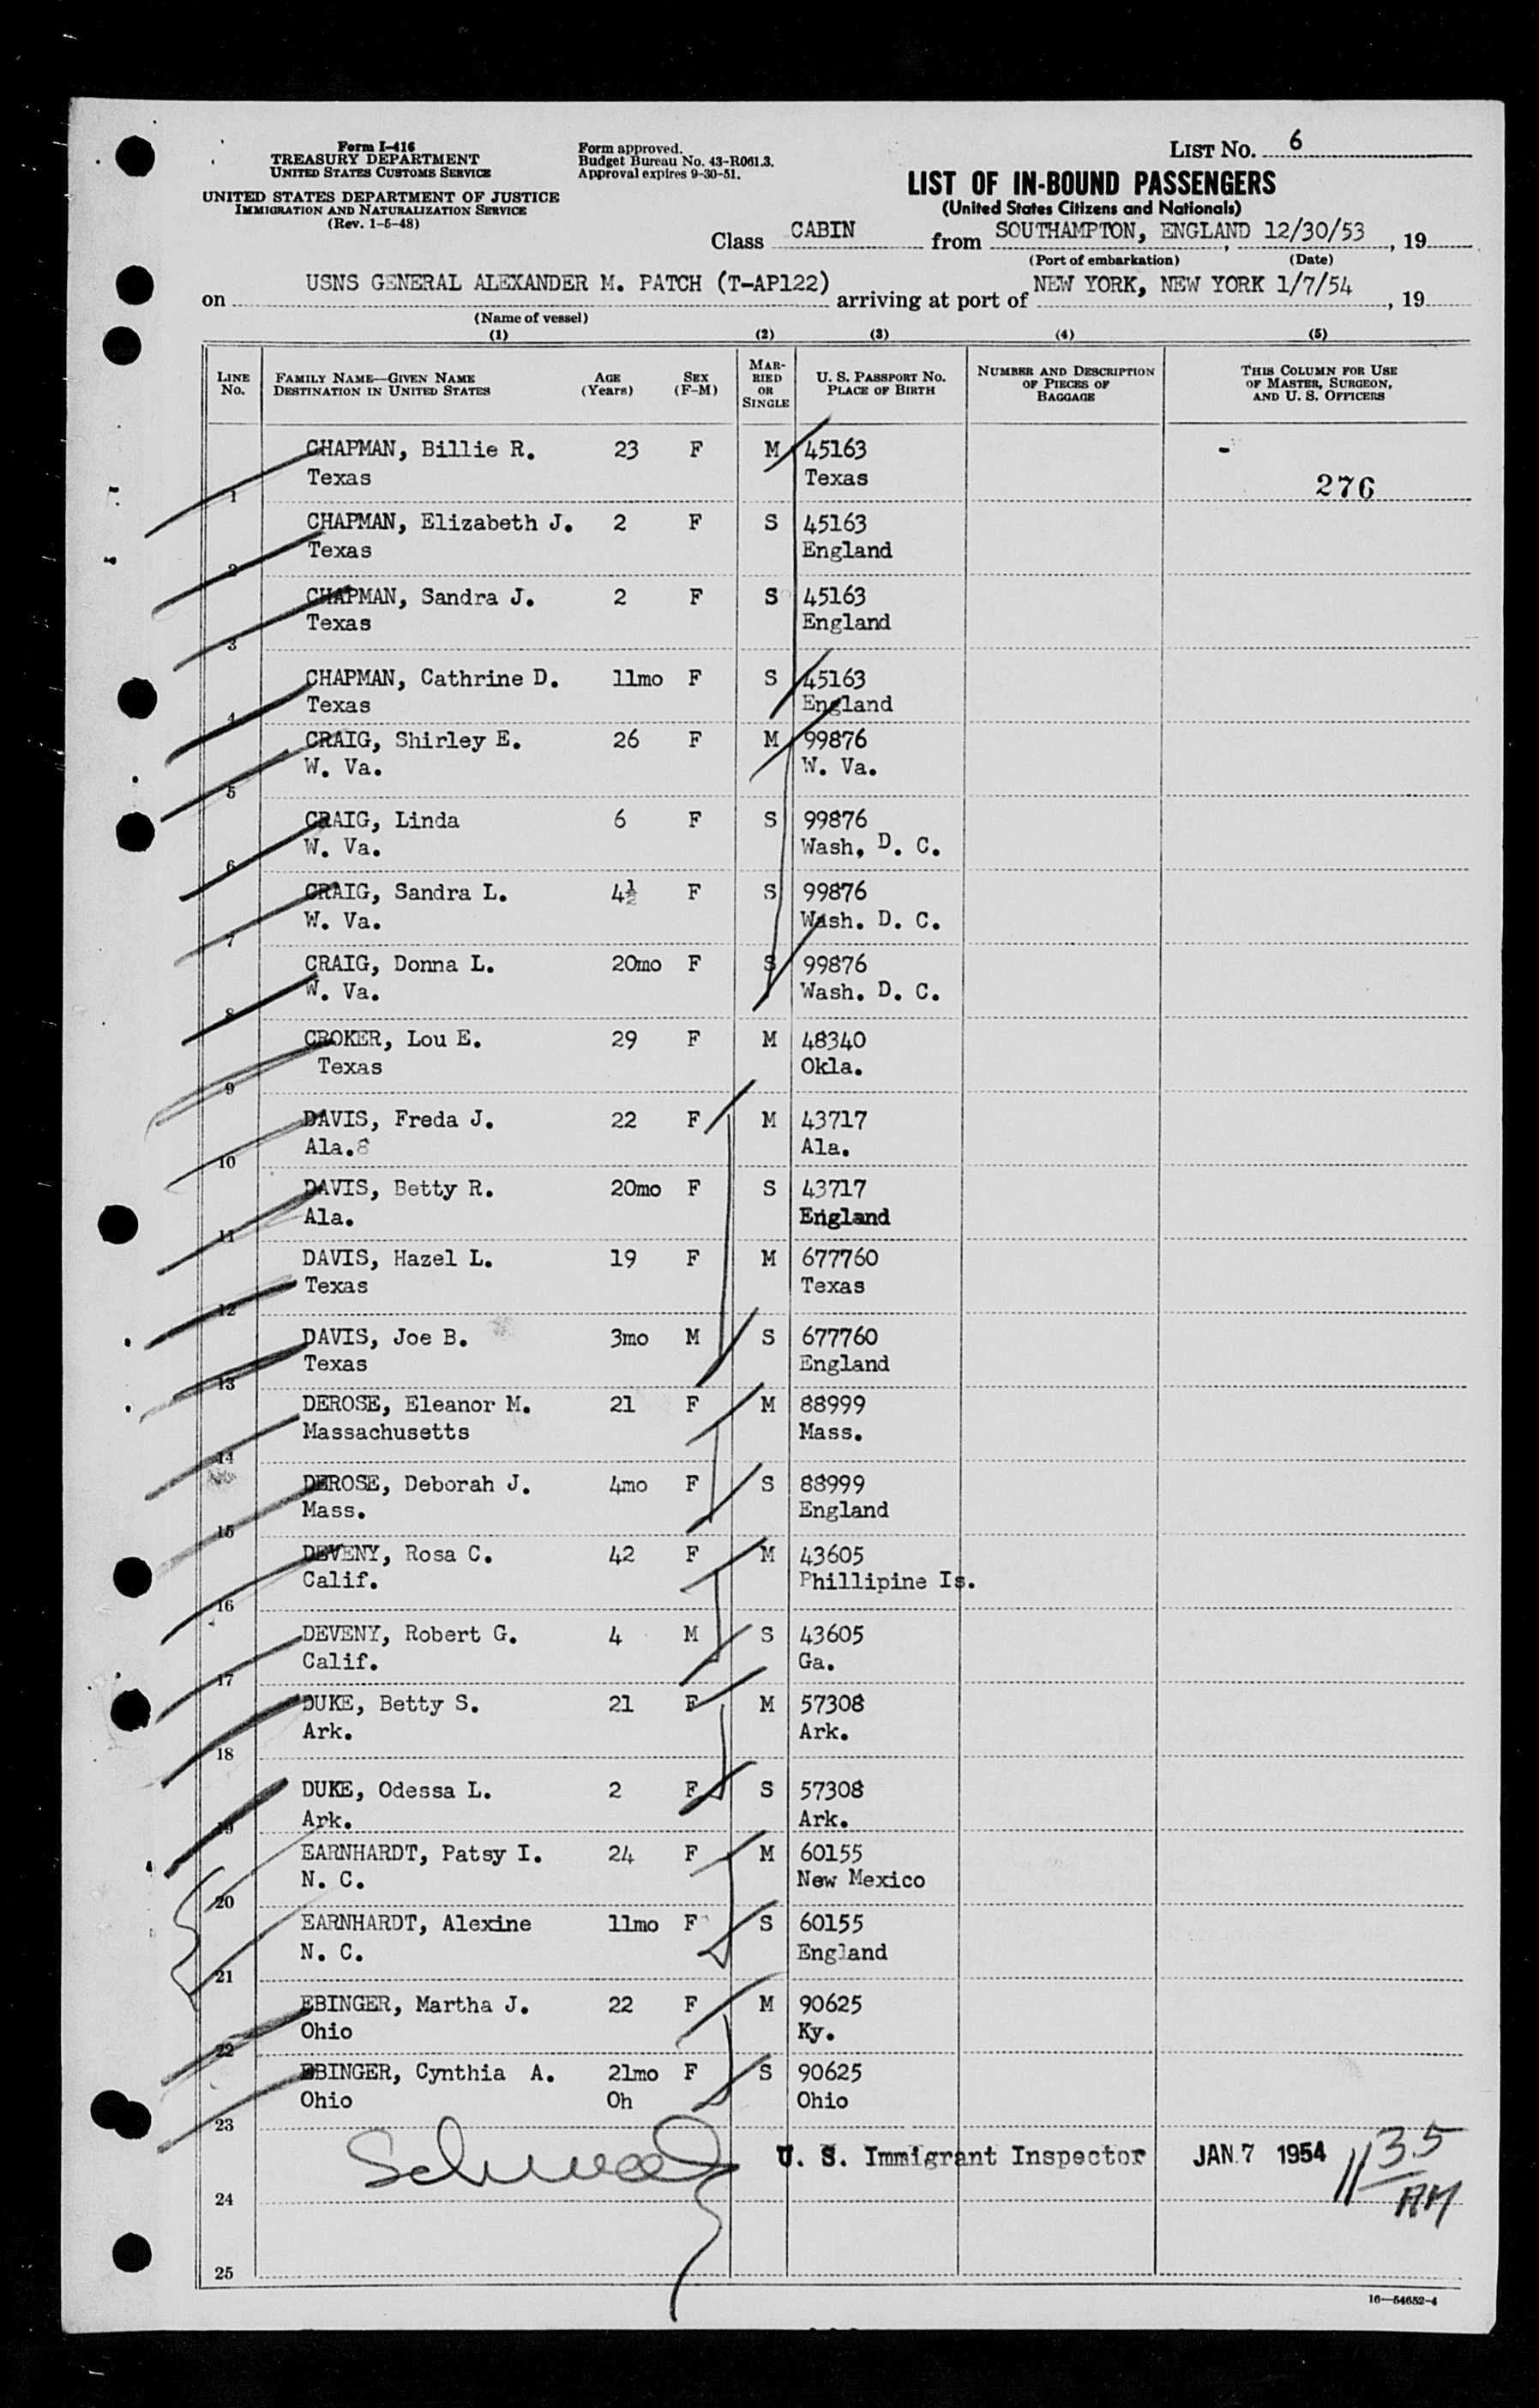 Form I-416
TREASURY DEPARTMENT
UNITED STATES CUSTOMS SERVICE
UNITED STATES DEPARTMENT OF JUSTICE
IMMIGRATION AND NATURALIZATION SERVICE
(Rev. 1-5-48)
Form approved.
Budget Bureau No. 43-R061.3.
Approval expires 9-30-51.
LIST NO. 6
LIST OF IN-BOUND PASSENGERS
(United States Citizens and Nationals)
Class CABIN from SOUTHAMPTON, ENGLAND, 12/30/53, 19
(Port of embarkation) (Date)
on USNS GENERAL ALEXANDER M. PATCH (T-AP122) arriving at port of NEW YORK, NEW YORK 1/7/54, 19
(Name of vessel)
(1) (2) (3) (4) (5)
LINE NO. FAMILY NAME—GIVEN NAME DESTINATION IN UNITED STATES AGE (Years) SEX (F-M) MARRIED OR SINGLE U. S. PASSPORT NO. PLACE OF BIRTH NUMBER AND DESCRIPTION OF PIECES OF BAGGAGE THIS COLUMN FOR USE OF MASTER, SURGEON, AND U. S. OFFICERS
CHAPMAN, Billie R. 23 F M 45163
1 Texas Texas 276
CHAPMAN, Elizabeth J. 2 F S 45163
2 Texas England
CHAPMAN, Sandra J. 2 F S 45163
3 Texas England
CHAPMAN, Cathrine D. 11mo F S 45163
4 Texas England
CRAIG, Shirley E. 26 F M 99876
5 W. Va. W. Va.
CRAIG, Linda 6 F S 99876
6 W. Va. Wash, D. C.
CRAIG, Sandra L. 4½ F S 99876
7 W. Va. Wash. D. C.
CRAIG, Donna L. 20mo F S 99876
8 W. Va. Wash. D. C.
CROKER, Lou E. 29 F M 48340
9 Texas Okla.
DAVIS, Freda J. 22 F M 43717
10 Ala. Ala.
DAVIS, Betty R. 20mo F S 43717
11 Ala. England
DAVIS, Hazel L. 19 F M 677760
12 Texas Texas
DAVIS, Joe B. 3mo M S 677760
13 Texas England
DEROSE, Eleanor M. 21 F M 88999
14 Massachusetts Mass.
DEROSE, Deborah J. 4mo F S 88999
15 Mass. England
DEVENY, Rosa C. 42 F M 43605
16 Calif. Phillipine Is.
DEVENY, Robert G. 4 M S 43605
17 Calif. Ga.
DUKE, Betty S. 21 F M 57308
18 Ark. Ark.
DUKE, Odessa L. 2 F S 57308
19 Ark. Ark.
EARNHARDT, Patsy I. 24 F M 60155
20 N. C. New Mexico
EARNHARDT, Alexine 11mo F S 60155
21 N. C. England
EBINGER, Martha J. 22 F M 90625
22 Ohio Ky.
EBINGER, Cynthia A. 21mo F S 90625
23 Ohio Oh Ohio
U. S. Immigrant Inspector JAN. 7 1954 11 35 AM
24
25
16—54652-4